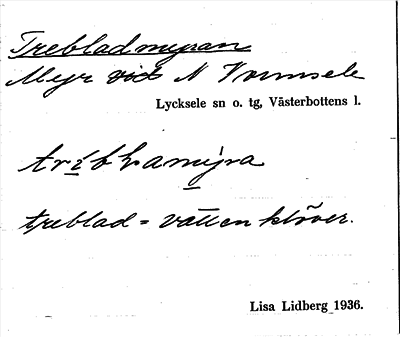 Trebladmyran
Myr vid N Vormsele
Lycksele sn o. tg, Västerbottens l.
tri̱bḷami̱ra
treblad = vattenklöver.
Lisa Lidberg 1936.